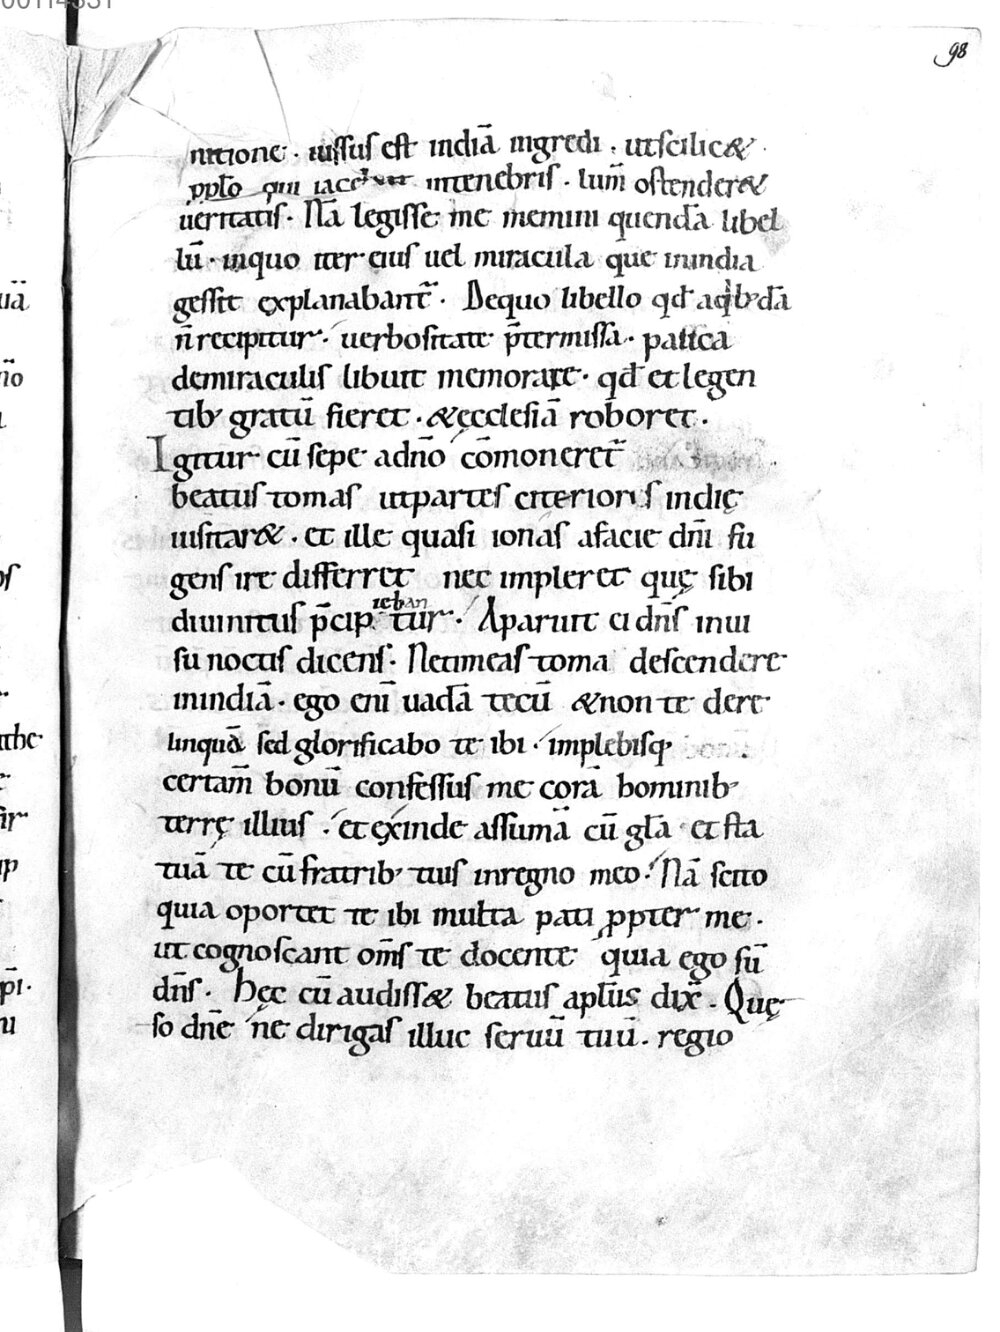 98
nitione . iussus est indiā ingredi . utscilic&
pplō qui iacebat intenebris . lum̄ ostender&
ueritatis . Nā legisse me memini quendā libel
lū . inquo iter eius uel miracula que inindia
gessit explanabant̄ . Dequo libello qđ aqͥbꝰdā
n̄ recipitur . uerbositate p̄termissa . pauca
demiraculis libuit memorare . qđ et legen
tibꝰ gratū fieret . &ęcclesiā roboret .
Igitur cū sepe adn̄o cōmoneret̄
beatus tomas utpartes citerioris indię
uisitar& . et ille quasi ionas afacie dn̄i fu
giens ire differret nec impleret quę sibi
ieban
diuinitus p̄cip tur . Aparuit ei dn̄s inui
su noctis dicens . Netimeas toma descendere
inindiā . ego eni̅ uadā tecū &non te dere
linquā sed glorificabo te ibi . implebisq
certam̄ bonū confessus me corā hominibꝰ
terrę illius . et exinde assumā cū gl̄a et sta
tuā te cū fratribꝰ tuis inregno meo . Nā scito
quia oportet te ibi multa pati ppter me .
ut cognoscant om̄s te docente quia ego sū
dn̄s . Hęc cū audiss& beatus apl̄us dix̄ . Quę
so dn̄e ne dirigas illuc seruū tuū . regio